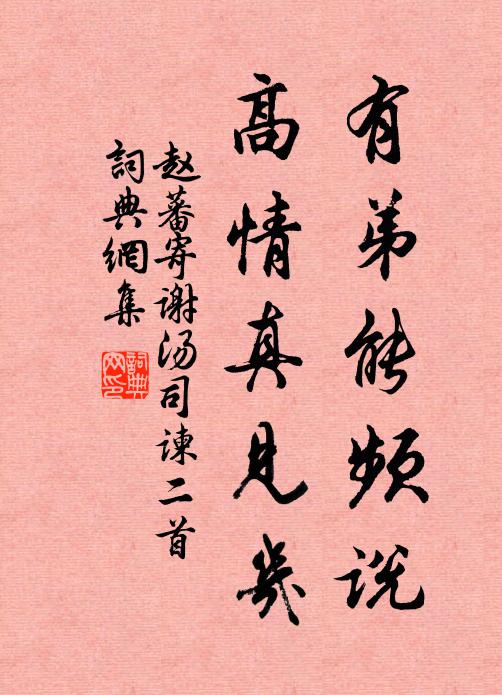 有弟能頻说
高情真见幾
赵蕃寄谢汤司谏二首
詞典網集
詞典网印